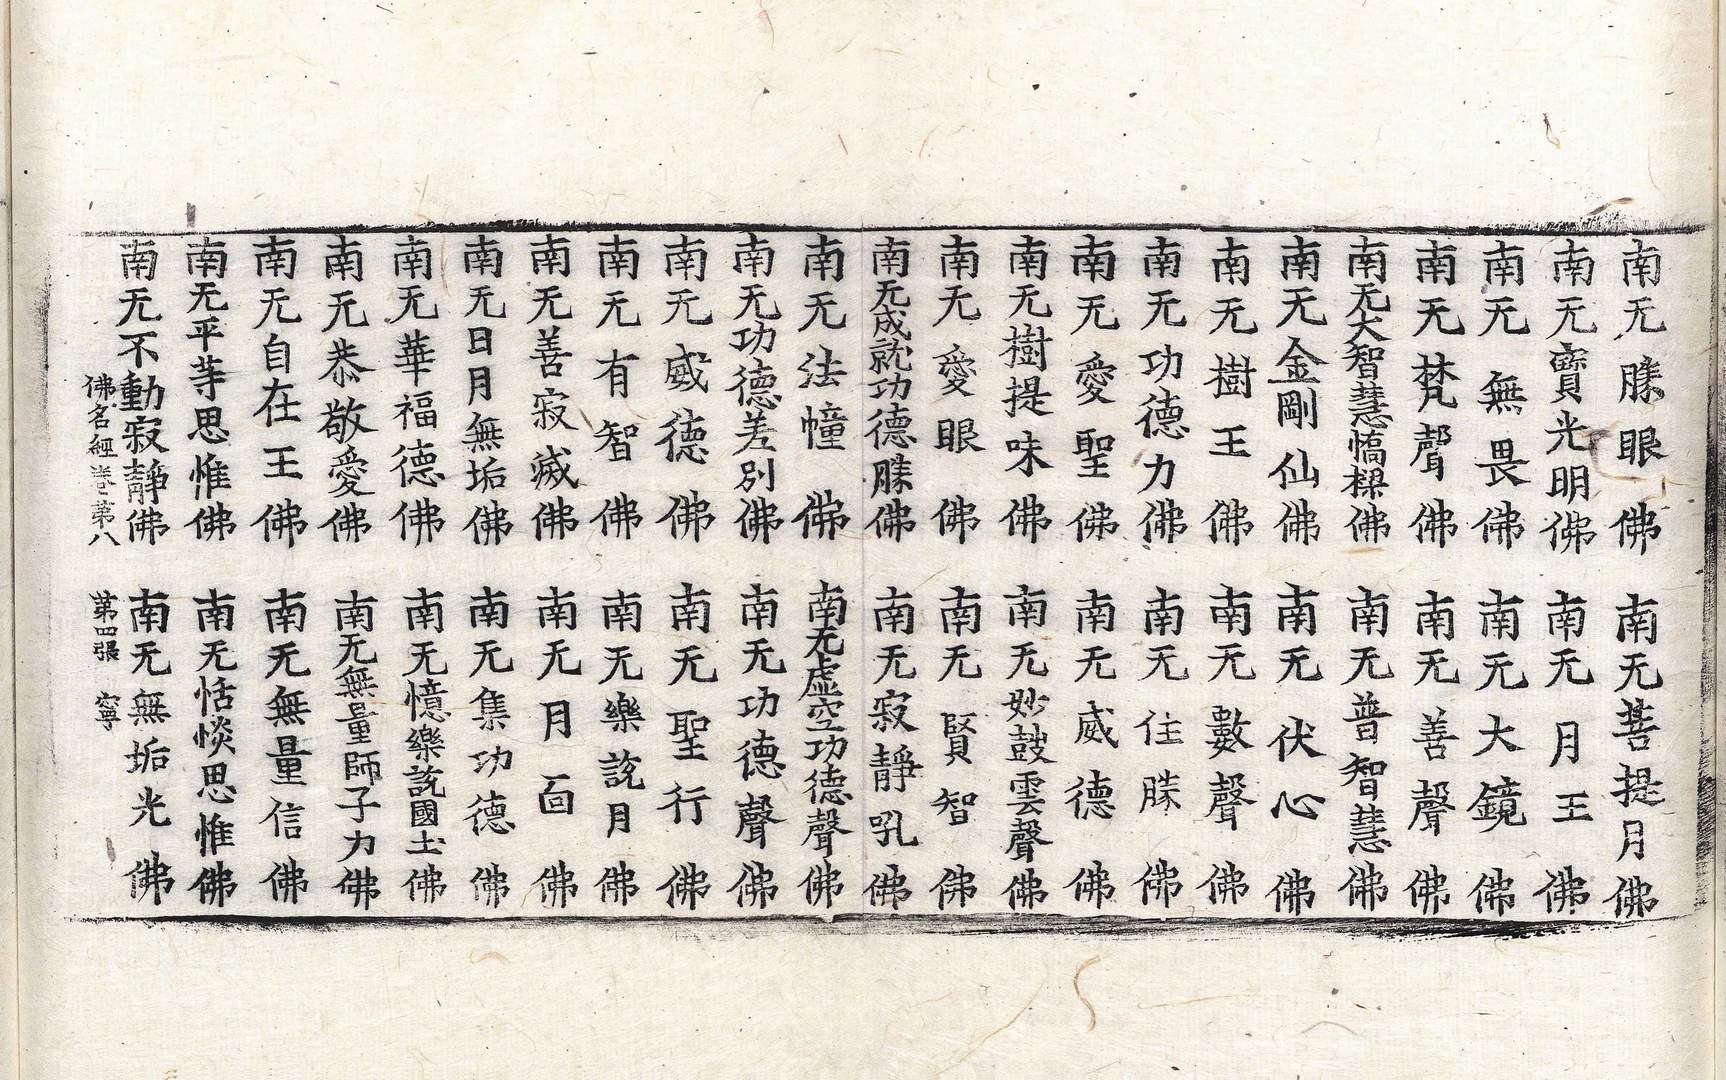 南无勝眼佛　南无菩提月佛
南无寶光明佛　南无月王佛
南无無畏佛　南无大鏡佛
南无梵聲佛　南无善聲佛
南无大智慧憍樑佛　南无普智慧佛
南无金剛仙佛　南无伏心佛
南无樹王佛　南无數聲佛
南无功德力佛　南无住勝佛
南无愛聖佛　南无威德佛
南无樹提味佛　南无妙鼓雲聲佛
南无愛眼佛　南无賢智佛
南无成就功德勝佛　南无寂靜吼佛
南无法幢佛　南无虛空功德聲佛
南无功德差別佛　南无功德聲佛
南无威德佛　南无聖行佛
南无有智佛　南无樂說月佛
南无善寂滅佛　南无月面佛
南无日月無垢佛　南无集功德佛
南无華福德佛　南无憶樂說國土佛
南无恭敬愛佛　南无無量師子力佛
南无自在王佛　南无無量信佛
南无平䓁思惟佛　南无恬惔思惟佛
南无不動寂靜佛　南无無垢光佛
佛名經卷第八　第四張